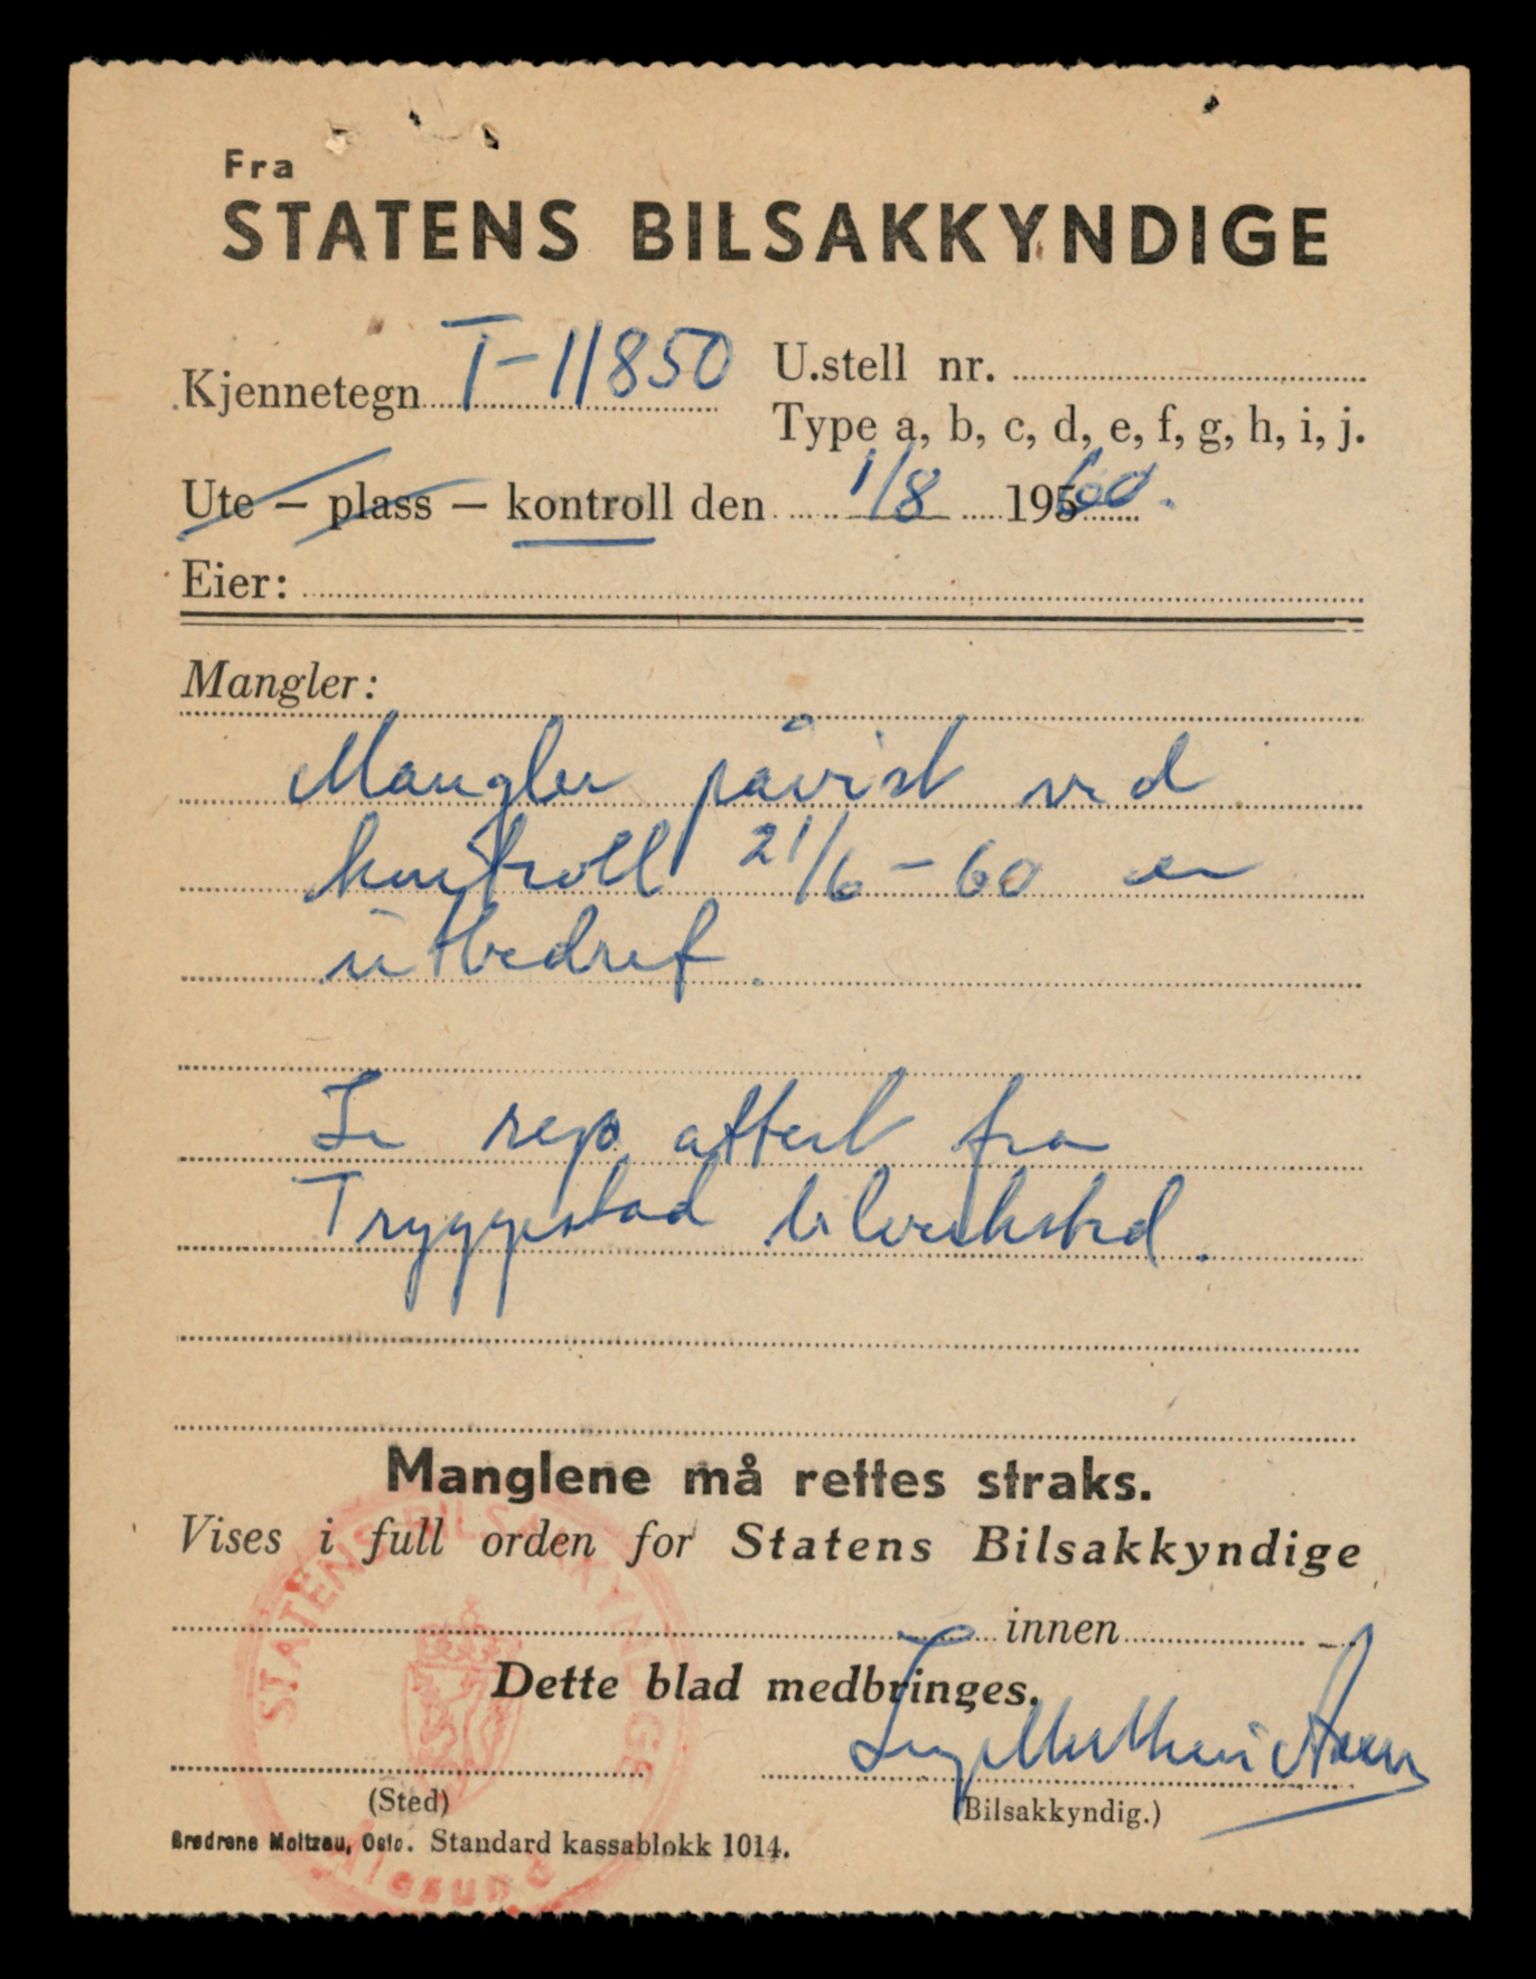 Fra
STATENS BILSAKKYNDIGE
Kjennetegn T-11850
U.stell nr.
Type a, b, c, d, e, f, g, h, i, j.
Ute – plass – kontroll den 1/8 1960.
Eier:
Mangler:
Mangler påvist ved
kontroll 21/6-60 er
utbedret.
Se rep. attest fra
Tryggestad bilverksted.
Manglene må rettes straks.
Vises i full orden for Statens Bilsakkyndige
innen
Dette blad medbringes.
(Sted)
(Bilsakkyndig.)
Brødrene Moltzau, Oslo. Standard kassablokk 1014.
STATENS BILSAKKYNDIGE
Ålesund